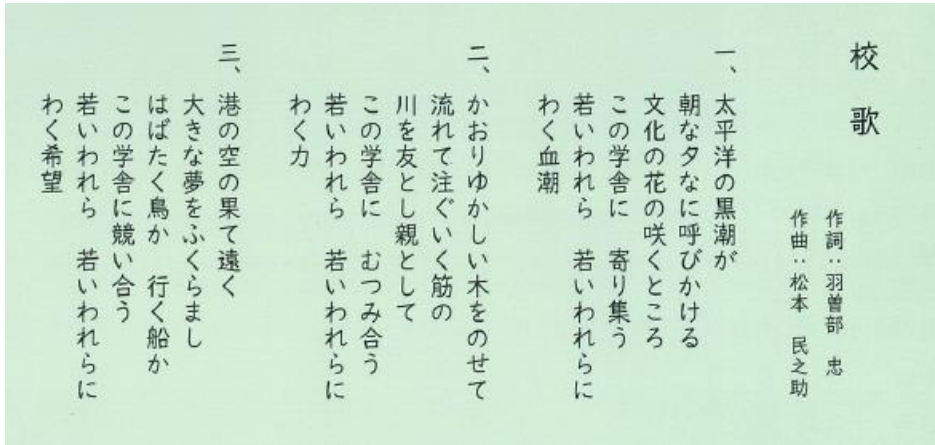 校歌
作詞：羽曽部　忠
作曲：松本　民之助
一、太平洋の黒潮が
朝な夕なに呼びかける
文化の花の咲くところ
この学舎に　寄り集う
若いわれら　若いわれらに
わく血潮
二、かおりゆかしい木をのせて
流れて注ぐいく筋の
川を友とし親として
この学舎に　むつみ合う
若いわれら　若いわれらに
わく力
三、港の空の果て遠く
大きな夢をふくらまし
はばたく鳥か　行く船か
この学舎に競い合う
若いわれら　若いわれらに
わく希望